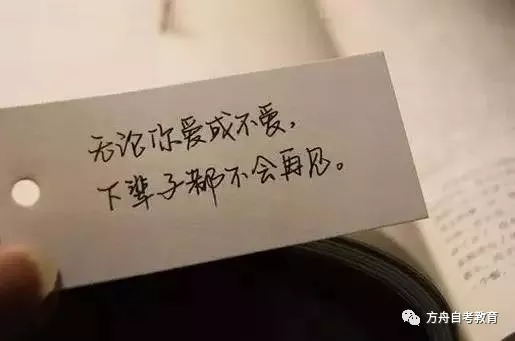 无论你爱或不爱，
下辈子都不会再见。
方舟自考教育